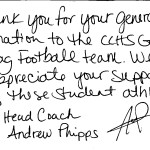 ank you for your generou
nation to the CCHS G
ag Football team. We
appreciate your suppo
these student athl
Head Coach
Andrew Phipps
AP